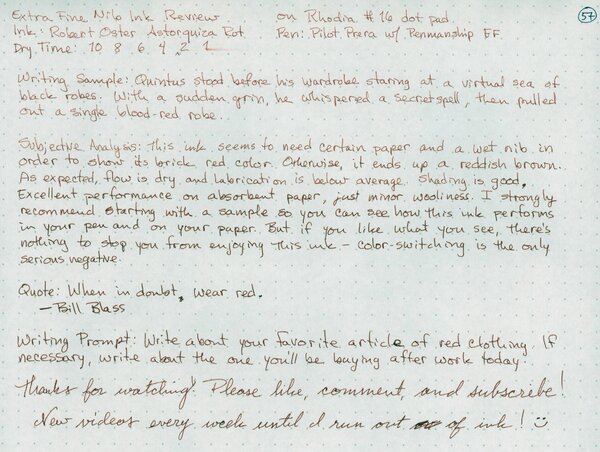 Extra Fine Nib Ink Review on Rhodia #16 dot pad 57
Ink: Robert Oster Astorquiza Rot Pen: Pilot Prera w/ Penmanship EF
Dry Time: 10 8 6 4 2 1
Writing Sample: Quintus stood before his wardrobe staring at a virtual sea of
black robes. With a sudden grin, he whispered a secret spell, then pulled
out a single blood-red robe.
Subjective Analysis: This ink seems to need certain paper and a wet nib in
order to show its brick red color. Otherwise, it ends up a reddish brown.
As expected, flow is dry and lubrication is below average. Shading is good.
Excellent performance on absorbent paper, just minor wooliness. I strongly
recommend starting with a sample so you can see how this ink performs
in your pen and on your paper. But if you like what you see, there's
nothing to stop you from enjoying this ink - color-switching is the only
serious negative.
Quote: When in doubt, wear red.
- Bill Blass
Writing Prompt: Write about your favorite article of red clothing. If
necessary, write about the one you'll be buying after work today.
Thanks for watching! Please like, comment, and subscribe!
New videos every week until I run out of ink!